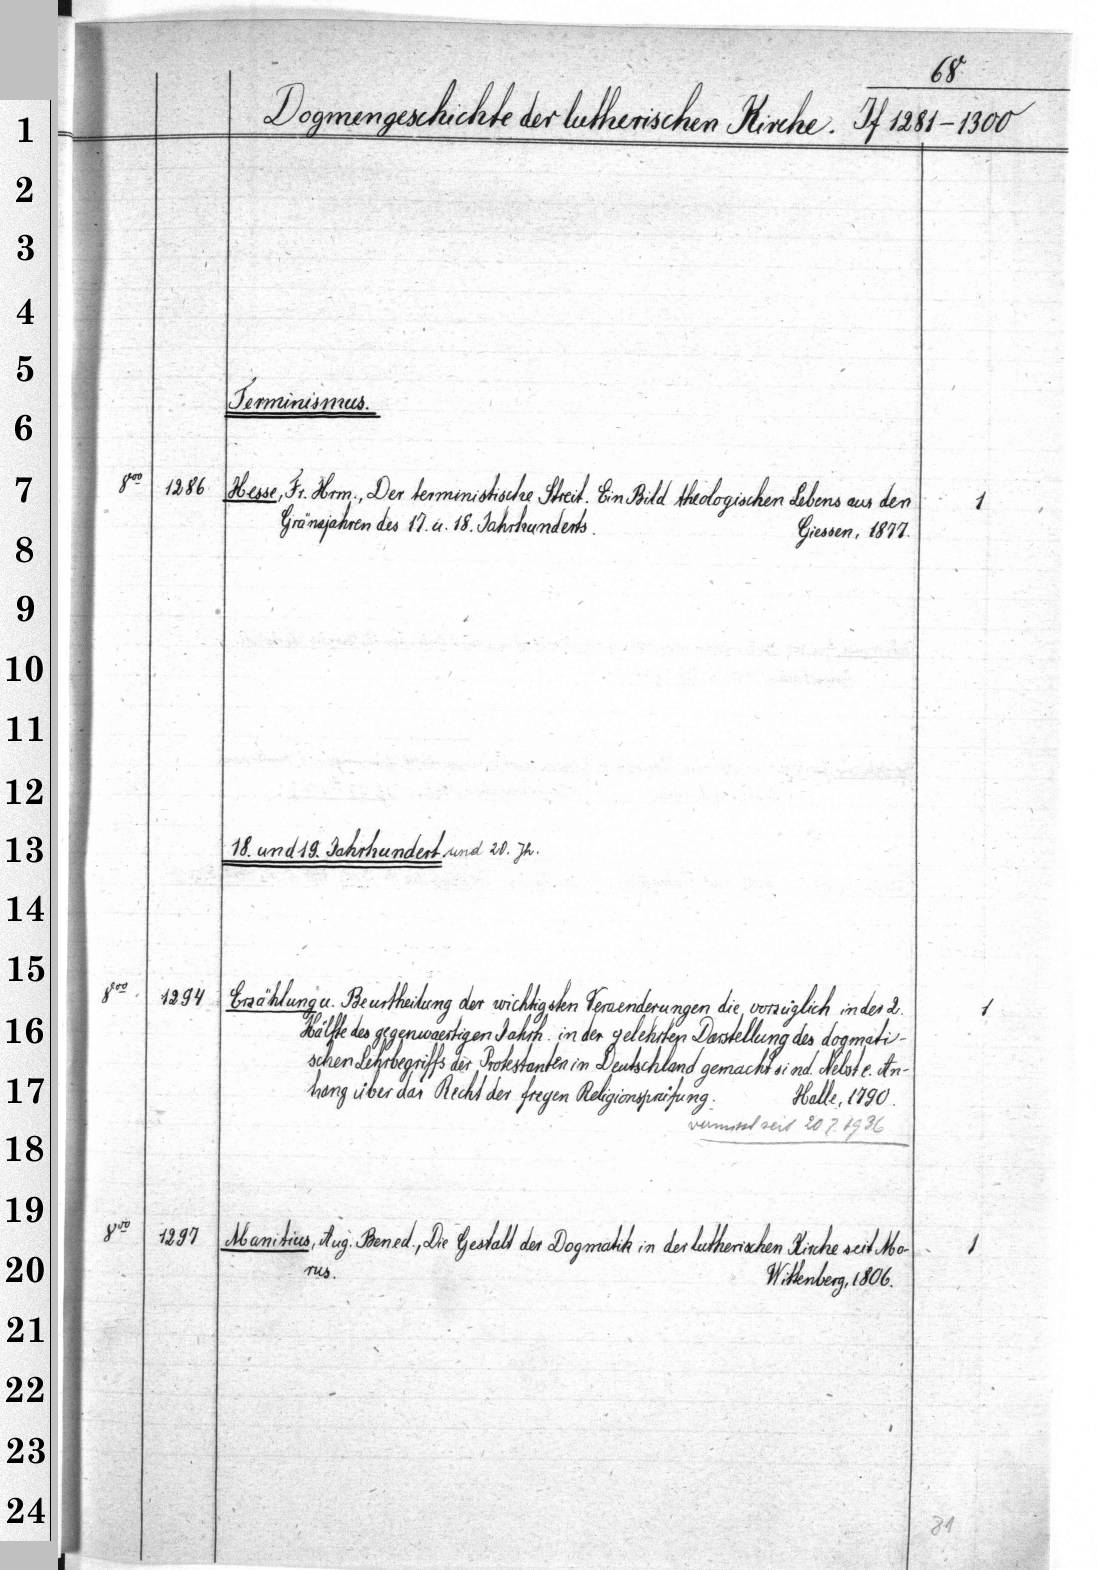 68
Dogmengeschichte der lutherischen Kirche. If 1281–1300
1
2
3
4
5
Terminismus.
6
7 8vo 1286 Hesse, Fr. Hrm., Der terministische Streit. Ein Bild theologischen Lebens aus den 1
Gränzjahren des 17. u. 18. Jahrhunderts. Giessen, 1877.
8
9
10
11
12
13 18. und 19. Jahrhundert und 20. Jh.
14
15
8vo 1294 Erzählung u. Beurtheilung der wichtigsten Veraenderungen die vorzüglich in der 2. 1
16 Hälfte des gegenwaertigen Jahrh. in der gelehrten Darstellung des dogmati-
schen Lehrbegriffs der Protestanten in Deutschland gemacht sind. Nebst e. An-
17 hang über das Recht der freyen Religionsprüfung. Halle, 1790.
vermisst seit 20.7.1936
18
19
8vo 1297 Manitius, Aug. Bened., Die Gestalt der Dogmatik in der lutherischen Kirche seit Mo- 1
20 rus. Wittenberg, 1806.
21
22
23
24
81